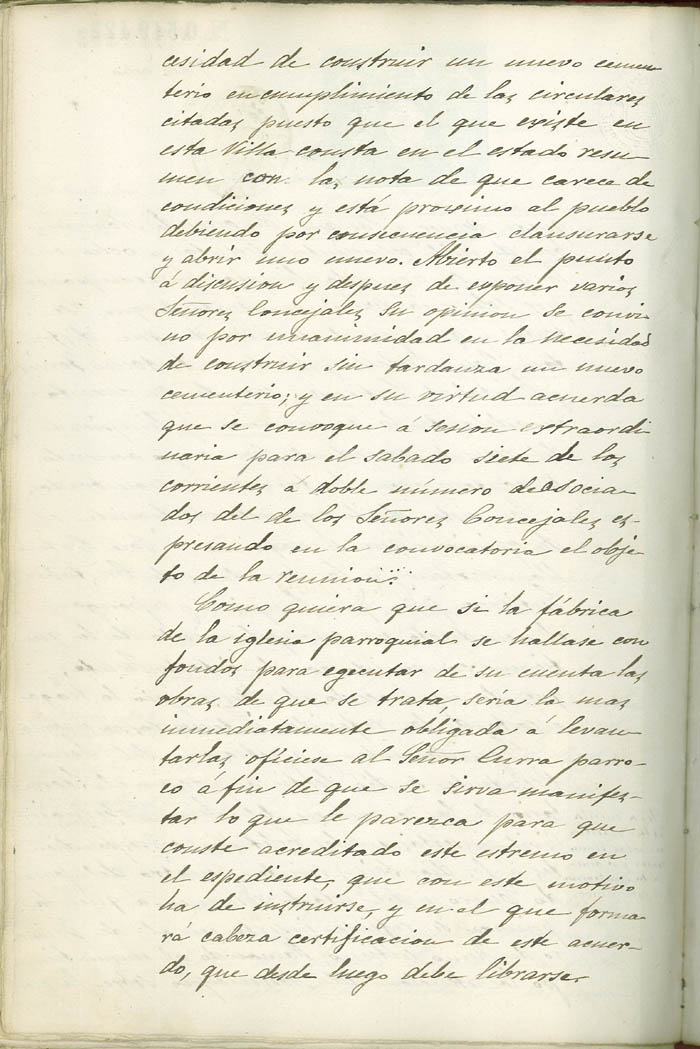 cesidad de construir un nuevo cemen
terio en cumplimiento de las circulares
citadas puesto que el que existe en
esta Villa consta en el estado resu-
men con la nota de que carece de
condiciones y está proximo al pueblo
debiendo por consecuencia clausurarse
y abrir uno nuevo. Abierto el punto
á discusion y despues de exponer varios
Señores Concejales su opinion se convi-
no por unanimidad en la necesidad
de construir sin tardanza un nuevo
cementerio; y en su virtud acuerda
que se convoque á sesion extraordi
naria para el sabado siete de los
corrientes a doble número de asocia-
dos del de los Señores Concejales es-
presando en la convocatoria el obje-
to de la reunion.
Como quiera que si la fábrica
de la iglesia parroquial se hallase con
fondos para egecutar de su cuenta las
obras de que se trata, sería la mas
inmediatamente obligada á levan-
tarlas ofíciese al Señor Curra parro-
co á fin de que se sirva manifes-
tar lo que le parezca para que
conste acreditado este estremo en
el espediente, que con este motivo
ha de instruirse, y en el que forma-
rá cabeza certificacion de este acuer-
do, que desde luego debe librarse.